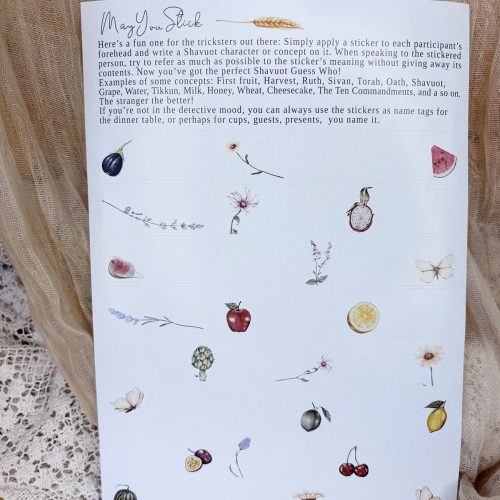 May You Stick
Here's a fun one for the tricksters out there: Simply apply a sticker to each participant's
forehead and write a Shavuot character or concept on it. When speaking to the stickered
person, try to refer as much as possible to the sticker's meaning without giving away its
contents. Now you've got the perfect Shavuot Guess Who!
Examples of some concepts: First fruit, Harvest, Ruth, Sivan, Torah, Oath, Shavuot,
Grape, Water, Tikkun, Milk, Honey, Wheat, Cheesecake, The Ten Commandments, and a so on.
The stranger the better!
If you're not in the detective mood, you can always use the stickers as name tags for
the dinner table, or perhaps for cups, guests, presents, you name it.